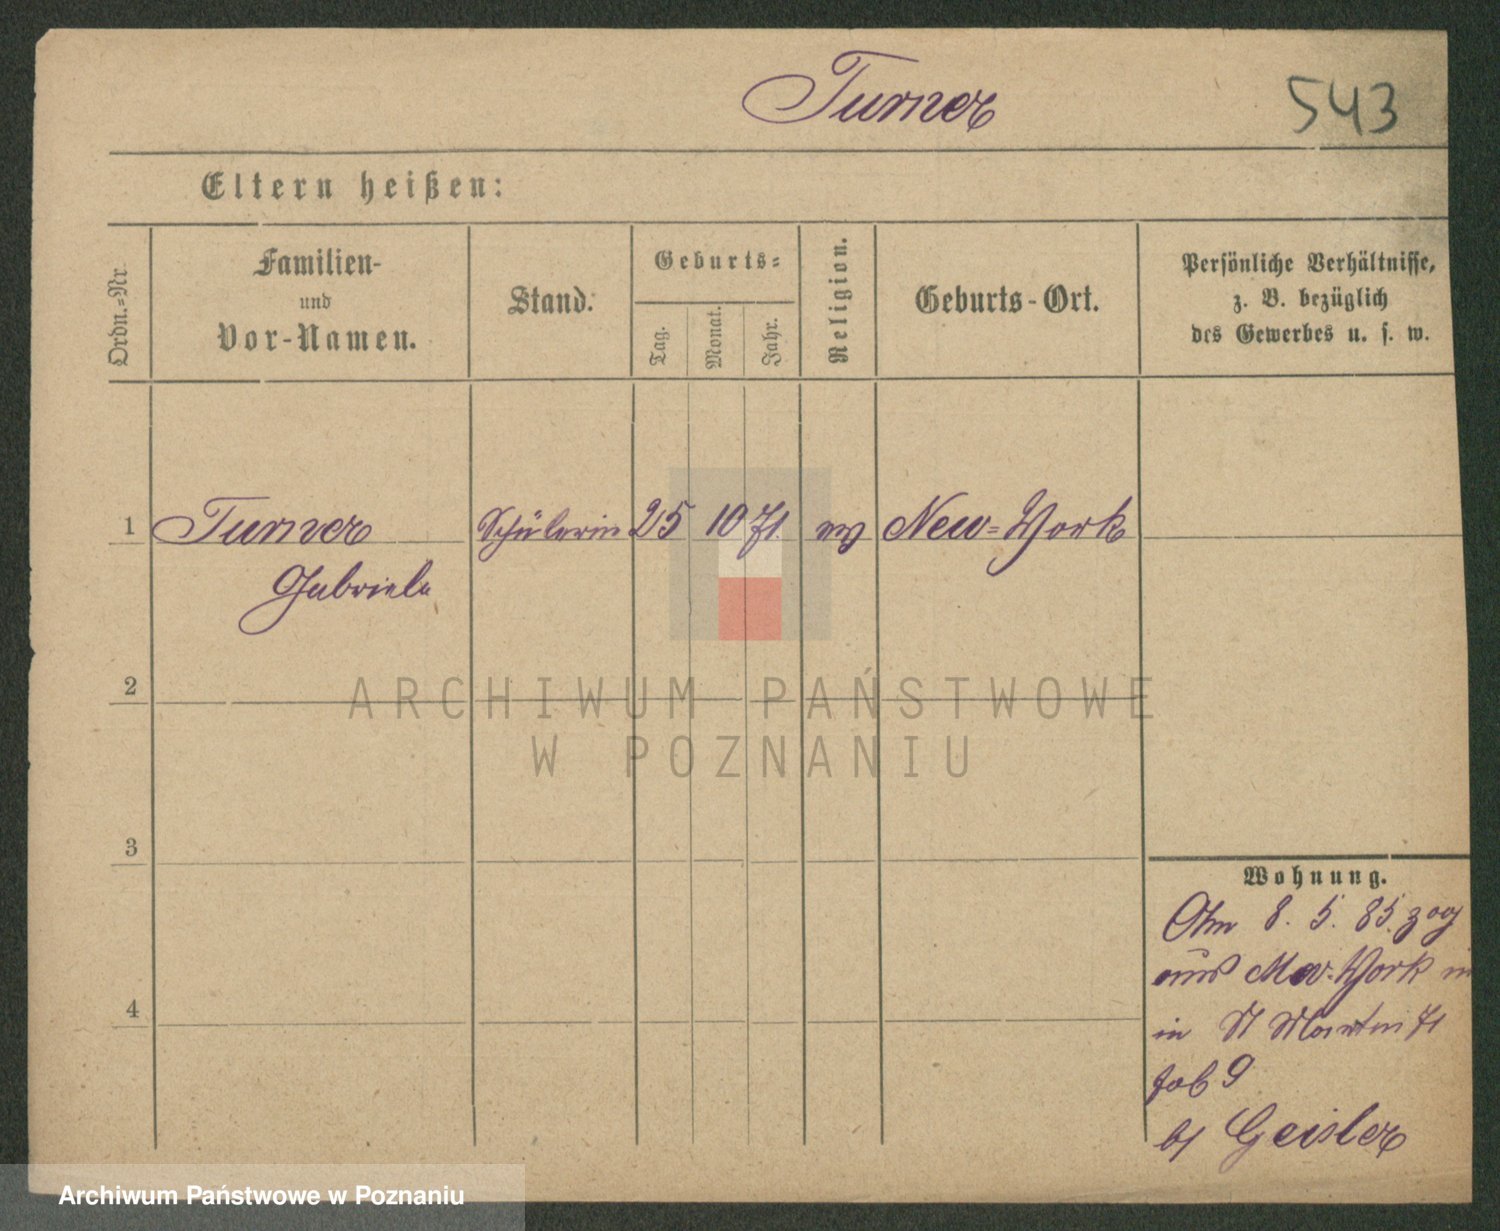 Turner
543
Eltern heißen:
Ordn.=Nr.
Familien-
und
Vor-Namen.
Stand.
Geburts=
Tag.
Monat.
Jahr.
Religion.
Geburts-Ort.
Persönliche Verhältnisse,
z. B. bezüglich
des Gewerbes u. s. w.
1 Turner Schülerin 25 10 71. ev New=York
Gabriele
2
3
4
Wohnung.
8. 5. 85. zog
aus New-York in
in St Martin 71
9
bj Geisler
ARCHIWUM PAŃSTWOWE
W POZNANIU
Archiwum Państwowe w Poznaniu